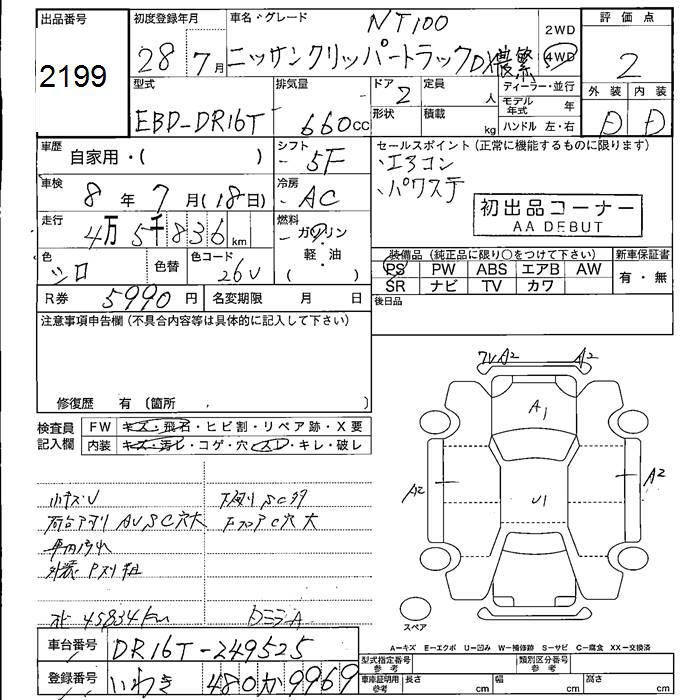 出品番号 初度登録年月 車名・グレード NT100 2WD 評価点
2199 28 7月 ニッサンクリッパートラックDX農繁 4WD 2
型式 排気量 ドア 2 定員 人 ディーラー・並行 外装 内装
EBD-DR16T 660cc 形状 積載 kg モデル年式 年 D D
ハンドル 左・右
車歴 自家用・( ) シフト 5F セールスポイント (正常に機能するものに限ります)
・エアコン
車検 8年 7月(18日) 冷房 AC ・パワステ
初出品コーナー
AA DEBUT
走行 4万5千836km 燃料 ガソリン・軽・油 ( )
装備品 (純正品に限り○をつけて下さい) 新車保証書
色 シロ 色替 色コード 26U PS PW ABS エアB AW 有・無
SR ナビ TV カワ
R券 5990円 名変期限 月 日 後日品
注意事項申告欄 (不具合内容等は具体的に記入して下さい)
修復歴 有 (箇所 )
検査員記入欄 FW キズ・飛石・ヒビ割・リペア跡・X要
内装 キズ・汚レ・コゲ・穴・スレ・キレ・破レ
A2 A2
A1
A2 U1 A2
小キズU 下廻りSC多
荷台アオリ AUSC穴大 FフロアC穴大
車内汚れ
45834km
スペア
A―キズ E―エクボ U―凹み W―補修跡 S―サビ C―腐食 XX―交換済
車台番号 DR16T-249525 型式指定番号 参考 類別区分番号 参考
登録番号 いわき 480 か 9969 車庫証明用 参考 長さ cm 幅 cm 高さ cm